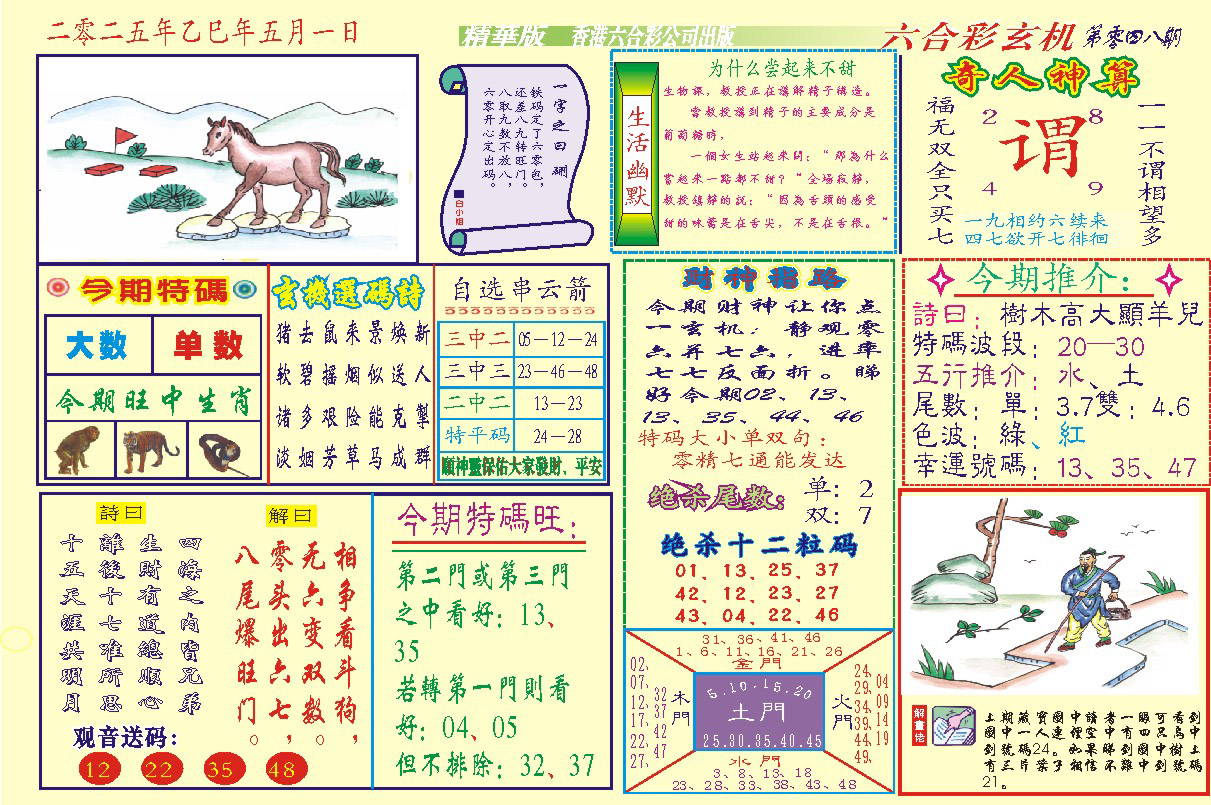 二零二五年乙巳年五月一日
精華版 香港六合彩公司出版
六合彩玄机 第零四八期
一字之曰 硼
铁码定了六零包，
还差八九转旺门。
八取九数不放八，
六零开心定出码。
白小姐
生活幽默
为什么尝起来不甜
生物课，教授正在講解精子構造。
當教授講到精子的主要成分是
葡萄糖時，
一個女生站起来問："那為什么
嘗起来一路都不甜？"全場寂靜，
教授鎮靜的說："因為舌頭的感受
甜的味蕾是在舌尖，不是在舌根。"
奇人神算
福无双全只买七
2 8
谓
4 9
一一不谓相望多
一九相约六续来
四七欲开七徘徊
今期特碼
大数 单数
今期旺中生肖
玄機選碼詩
猪去鼠来景焕新
软碧摇烟似送人
诸多艰险能克掣
淡姻芳草马成群
自选串云箭
三中二 05—12—24
三中三 23—46—48
二中二 13—23
特平码 24—28
願神靈保佑大家發財、平安
财神指路
今期财神让你点
一玄机：静观零
六并七六，进率
七七反面折。睇
好今期02、13、
13、35、44、46
特码大小单双句：
零精七通能发达
绝杀尾数：
单：2
双：7
绝杀十二粒码
01、13、25、37
42、12、23、27
43、04、22、46
今期推介：
詩曰：樹木高大顯羊兒
特碼波段：20—30
五行推介：水、土
尾數：單：3.7雙：4.6
色波：綠、紅
幸運號碼：13、35、47
詩曰
四海之内皆兄弟
生財有道總順心
離後十七唯所思
十五天涯共明月
解曰
相争看斗狗，
无六变双数，
零头出六七，
八尾爆旺门。
观音送码：
12 22 35 48
今期特碼旺：
第二門或第三門
之中看好：13、
35
若轉第一門則看
好：04、05
但不排除：32、37
31、36、41、46
1、6、11、16、21、26
金門
02、07、12、17、22、27、
32、37、42、47
木門
5.10.15.20
土門
25.30.35.40.45
火門
24、29、34、39、44、49、
04、09、14、19
水門
3、8、13、18
23、28、33、38、43、48
解畫佬
上期藏寶圖中讀者一眼可看到
圖中一人連裡空中有四只鸟中
到號碼24。如果睇到圖中樹上
有三片葉子相信不難中到號碼
21。